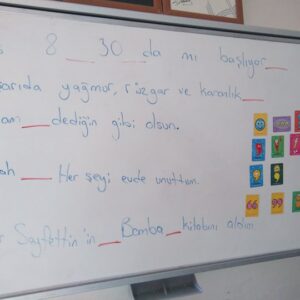 8 __ 30 __ da mı başlıyor __
yağmur, rüzgar ve karanlık __
__ dediğin gibi olsun.
__ Her şeyi evde unuttum.
Seyfettin'in __ Bomba __ kitabını aldım
66 99